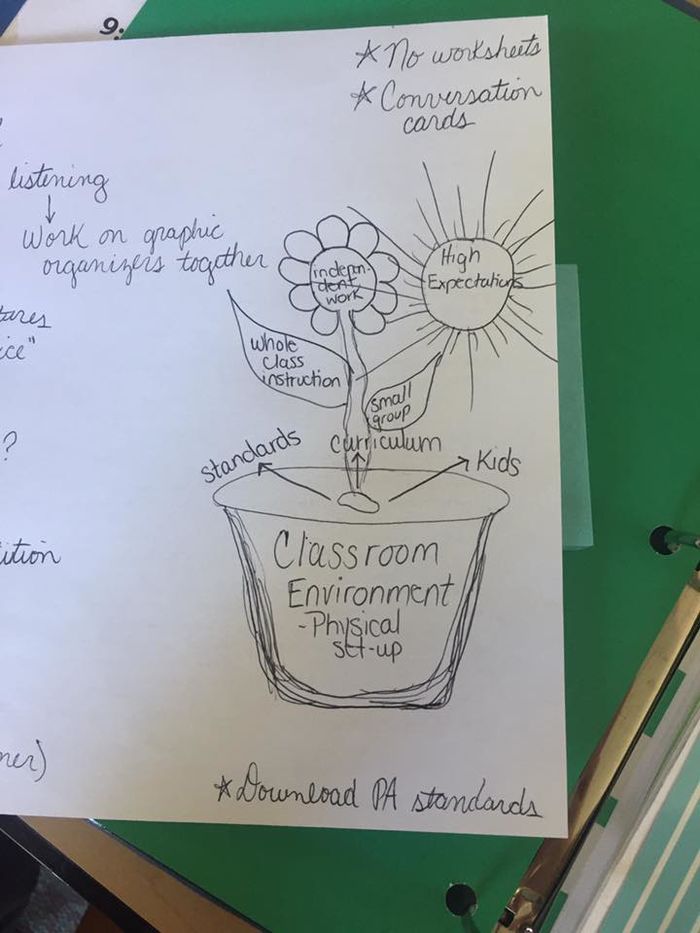 9:
* No worksheets
* Conversation
cards
listening
Work on graphic
organizers together
indepen-
dent
work
High
Expectations
Whole
class
instruction
small
group
ice"
?
standards
curriculum
Kids
Classroom
Environment
- Physical
set-up
* Download PA standards